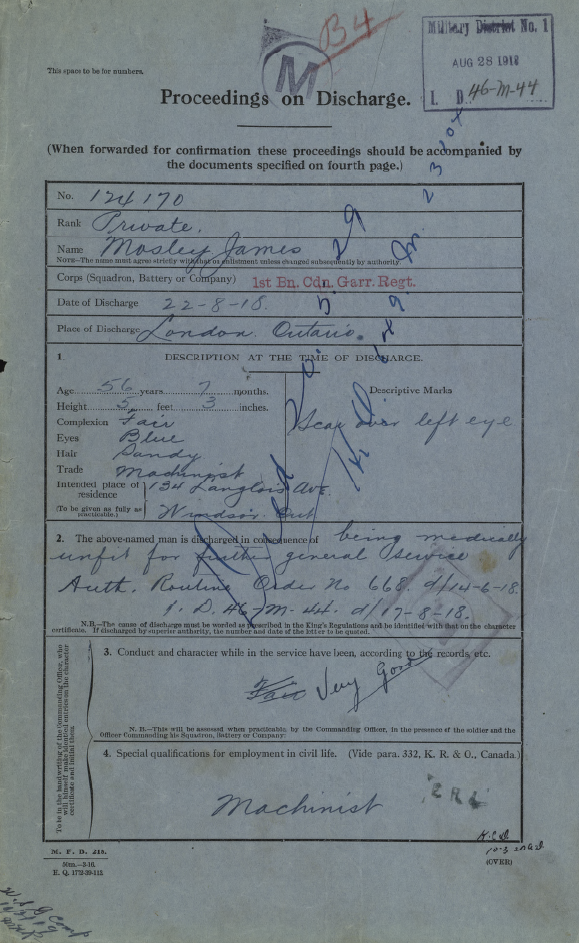 This space to be for numbers.
B4
M
Military District No. 1
AUG 28 1918
1. D. 46-M-44
Proceedings on Discharge.
(When forwarded for confirmation these proceedings should be accompanied by
the documents specified on fourth page.)
No. 124170
Rank Private.
Name Mosley James
NOTE—The name must agree strictly with that on enlistment unless changed subsequently by authority.
Corps (Squadron, Battery or Company) 1st Bn. Cdn. Garr. Regt.
Date of Discharge 22-8-18.
Place of Discharge London. Ontario.
1. DESCRIPTION AT THE TIME OF DISCHARGE.
Age 56 years 7 months.
Height 5 feet 3 inches.
Complexion Fair
Eyes Blue
Hair Sandy
Trade Machinist
Intended place of residence 134 Langlois Ave.
(To be given as fully as practicable.) Windsor. Ont
Descriptive Marks
Scar over left eye
2. The above-named man is discharged in consequence of being medically
unfit for further general service
Auth. Routine Order No 668. d/14-6-18.
1. D. 46-M-44. d/17-8-18.
N.B.—The cause of discharge must be worded as prescribed in the King's Regulations and be identified with that on the character
certificate. If discharged by superior authority, the number and date of the letter to be quoted.
To be in the handwriting of the Commanding Officer, who
will himself make identical entries on the character
certificate and initial them.
3. Conduct and character while in the service have been, according to the records, etc.
Fair Very Good
N. B.—This will be assessed when practicable, by the Commanding Officer, in the presence of the soldier and the
Officer Commanding his Squadron, Battery or Company:
4. Special qualifications for employment in civil life. (Vide para. 332, K. R. & O., Canada.)
Machinist
M. F. D. 218.
50m.—3-16.
H. Q. 1772-39-113
(OVER)